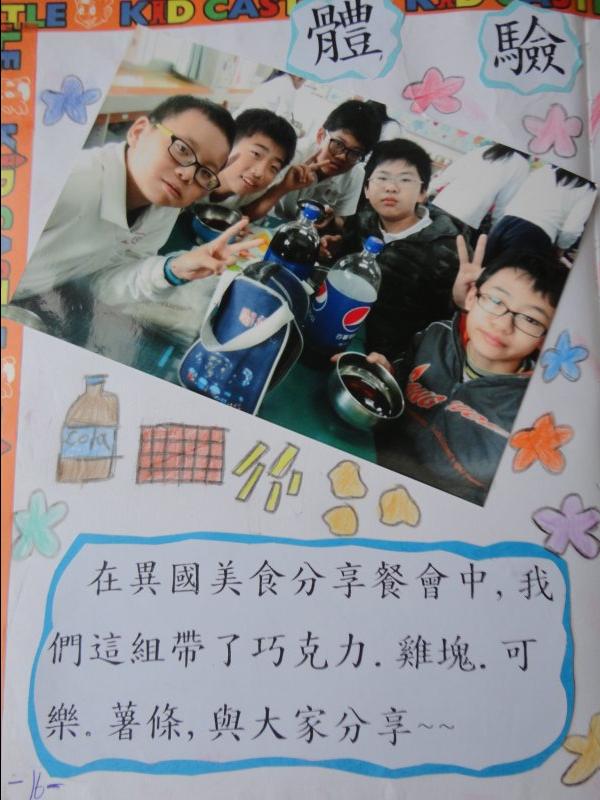 TLE KID CASTLE KID CASTLE
體 驗
KID CASTLE
PEPSI
cola
在異國美食分享餐會中,我
們這組帶了巧克力.雞塊.可
樂。薯條,與大家分享~~
-16-